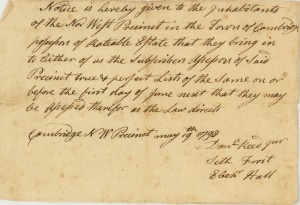 Notice is hereby given to the Inhabitants
of the Nor West Precinct in the Town of Cambridge
possessors of Rateable Estate that they bring in
to Either of us the Subscribers Assessors of Said
Precinct true & perfect Lists of the Same on or
before the first day of June next that they may
be Assessed therefor as the Law directs
Cambridge N W Precinct may 19th
Danl. Reed Jur
Seth Frost
Ebenr. Hall